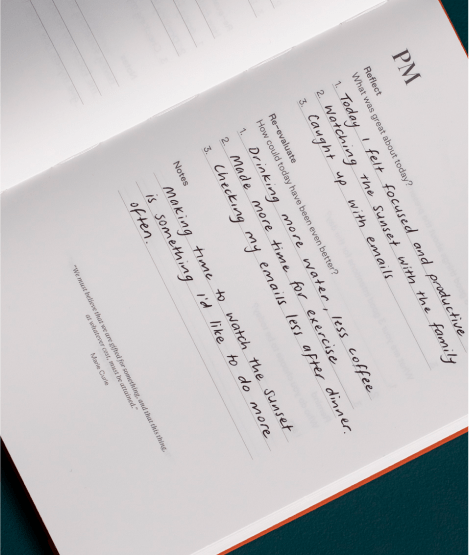 PM
Reflect
What was great about today?
1. Today I felt focused and productive
2. Watching the sunset with the family
3. Caught up with emails
Re-evaluate
How could today have been even better?
1. Drinking more water, less coffee
2. Made more time for exercise
3. Checking my emails less after dinner.
Notes
Making time to watch the sunset
is something i'd like to do more
often.
"We must believe that we are gifted for something, and that this thing,
at whatever cost, must be attained."
Marie Curie